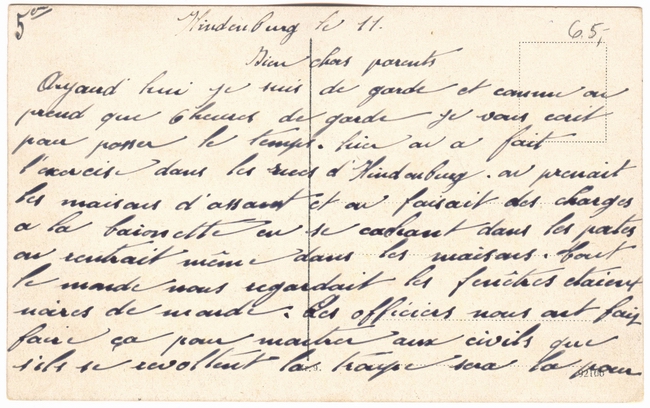 5
Hindenburg le 11.
6.5
Bien chers parents
Aujourd'hui je suis de garde et comme on
prend que 6 heures de garde je vous ecrit
pour passer le temps. hier on a fait
l'exercise dans les rues d'Hindenburg. on prenait
les maisons d'assaut et on faisait des charges
a la baionette en se cachant dans les portes
on rentrait même dans les maisons. tout
le monde nous regardait les fenêtres etaient
noires de monde. Les officiers nous ont fait
faire ça pour montrer aux civils que
s'ils se revoltent la troupe sera la pour
92106